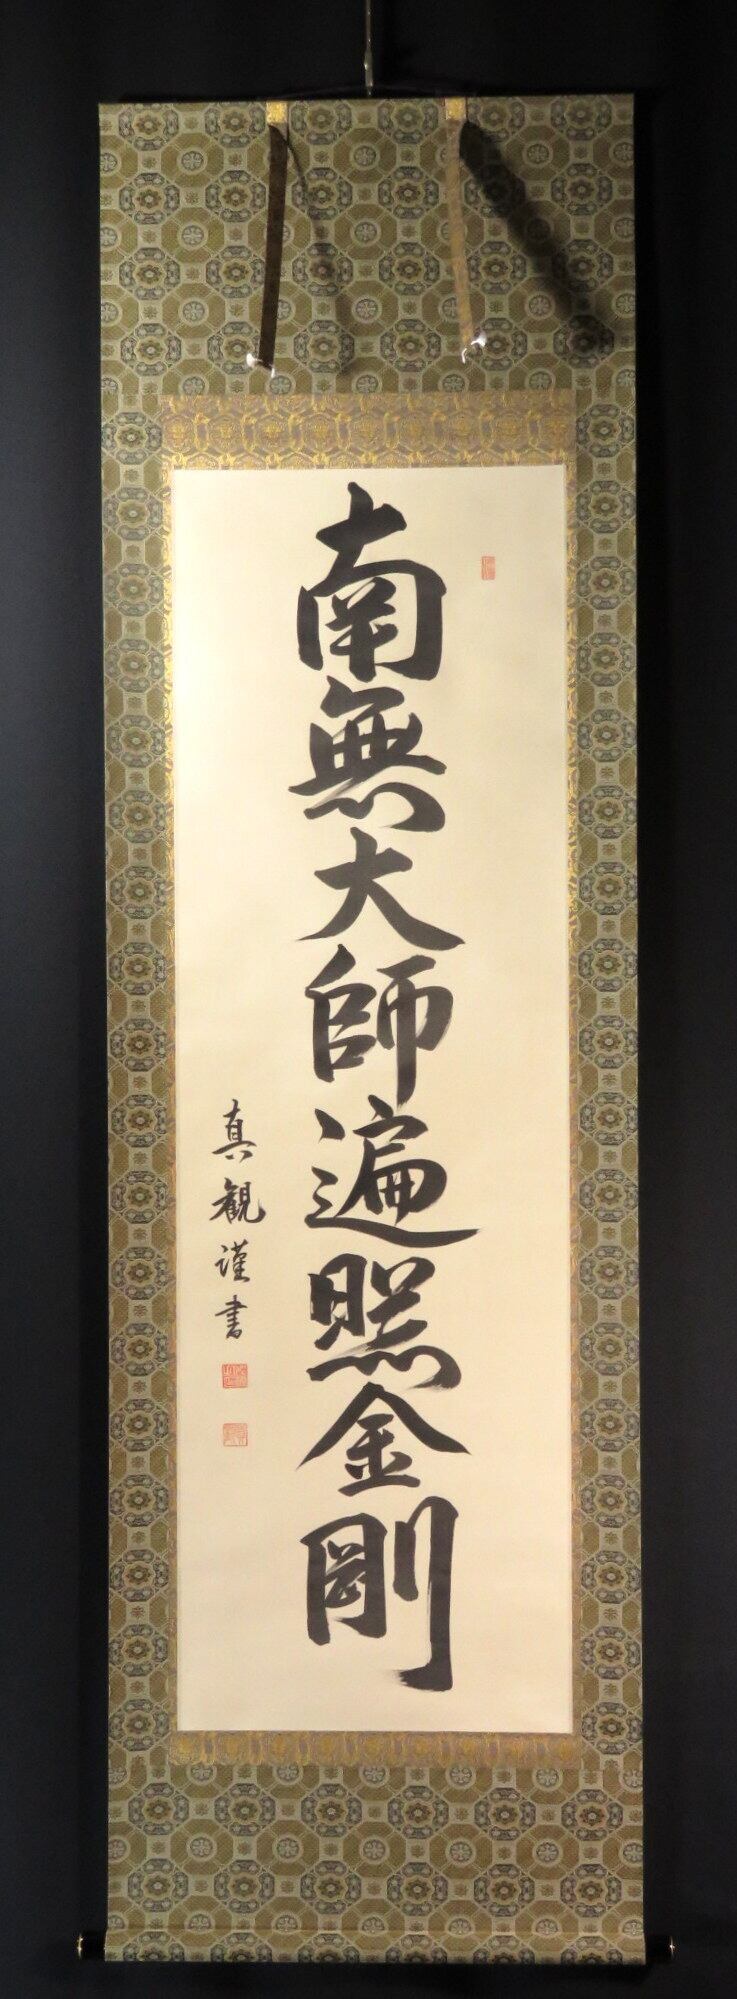 南無大師遍照金剛
真観謹書